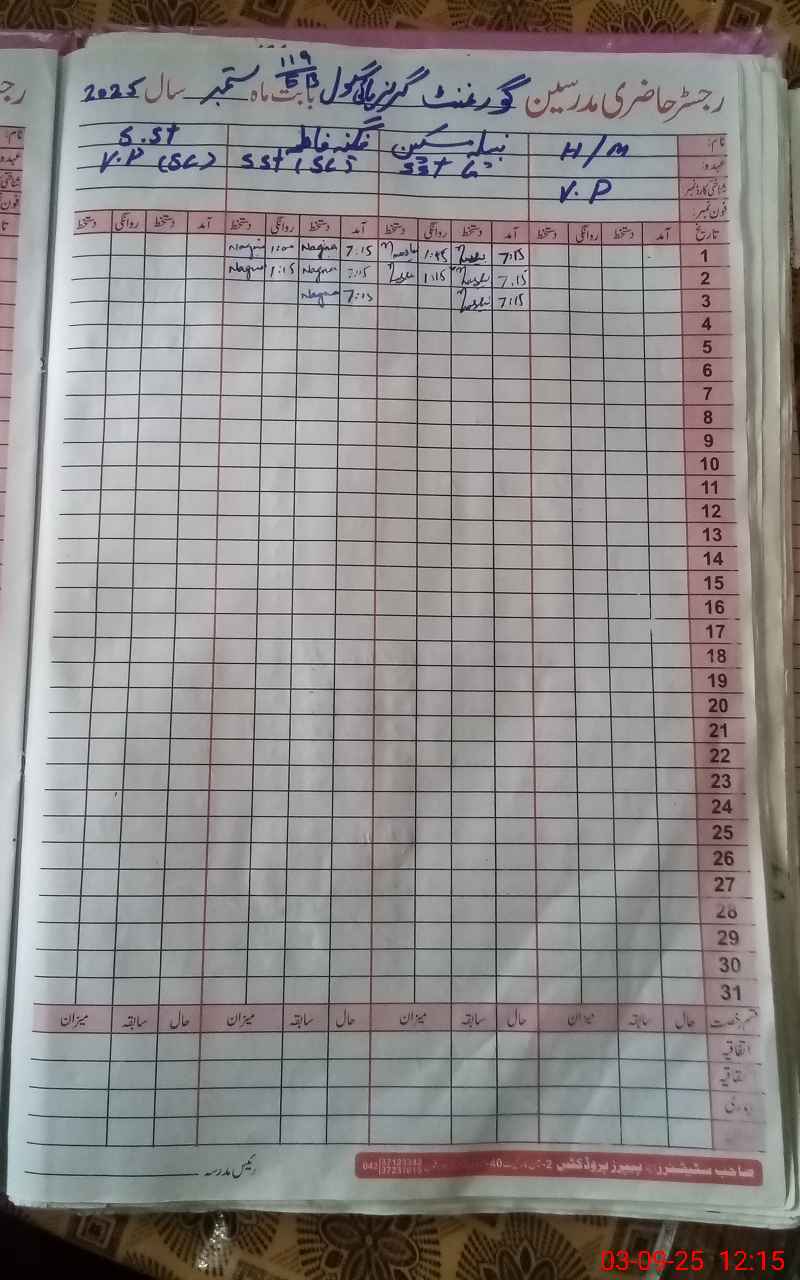 119
EB
رجسٹر حاضری مدرسین گورنمنٹ گرلز ہائی سکول بابت ماہ ستمبر سال 2025
نام: H/M نبیلہ سکین نگینہ فاطمہ S.St
عہدہ: SSt G SSt (SC) V.P (SC)
شناختی کارڈ نمبر V.P
فون نمبر:
تاریخ آمد دستخط روانگی دستخط آمد دستخط روانگی دستخط آمد دستخط روانگی دستخط آمد دستخط روانگی دستخط
1 7:15 1:45 7:15 Nagina 1:00 Nagina
2 7:15 1:15 7:15 Nagina 1:15 Nagina
3 7:15 7:15 Nagina
4
5
6
7
8
9
10
11
12
13
14
15
16
17
18
19
20
21
22
23
24
25
26
27
28
29
30
31
قسم رخصت حال سابقہ میزان حال سابقہ میزان حال سابقہ میزان حال سابقہ میزان
اتفاقیہ
رئیس مدرسہ
صاحب سٹیشنرز پیپرز پروڈکٹس 2- 40- 042
03-09-25 12:15